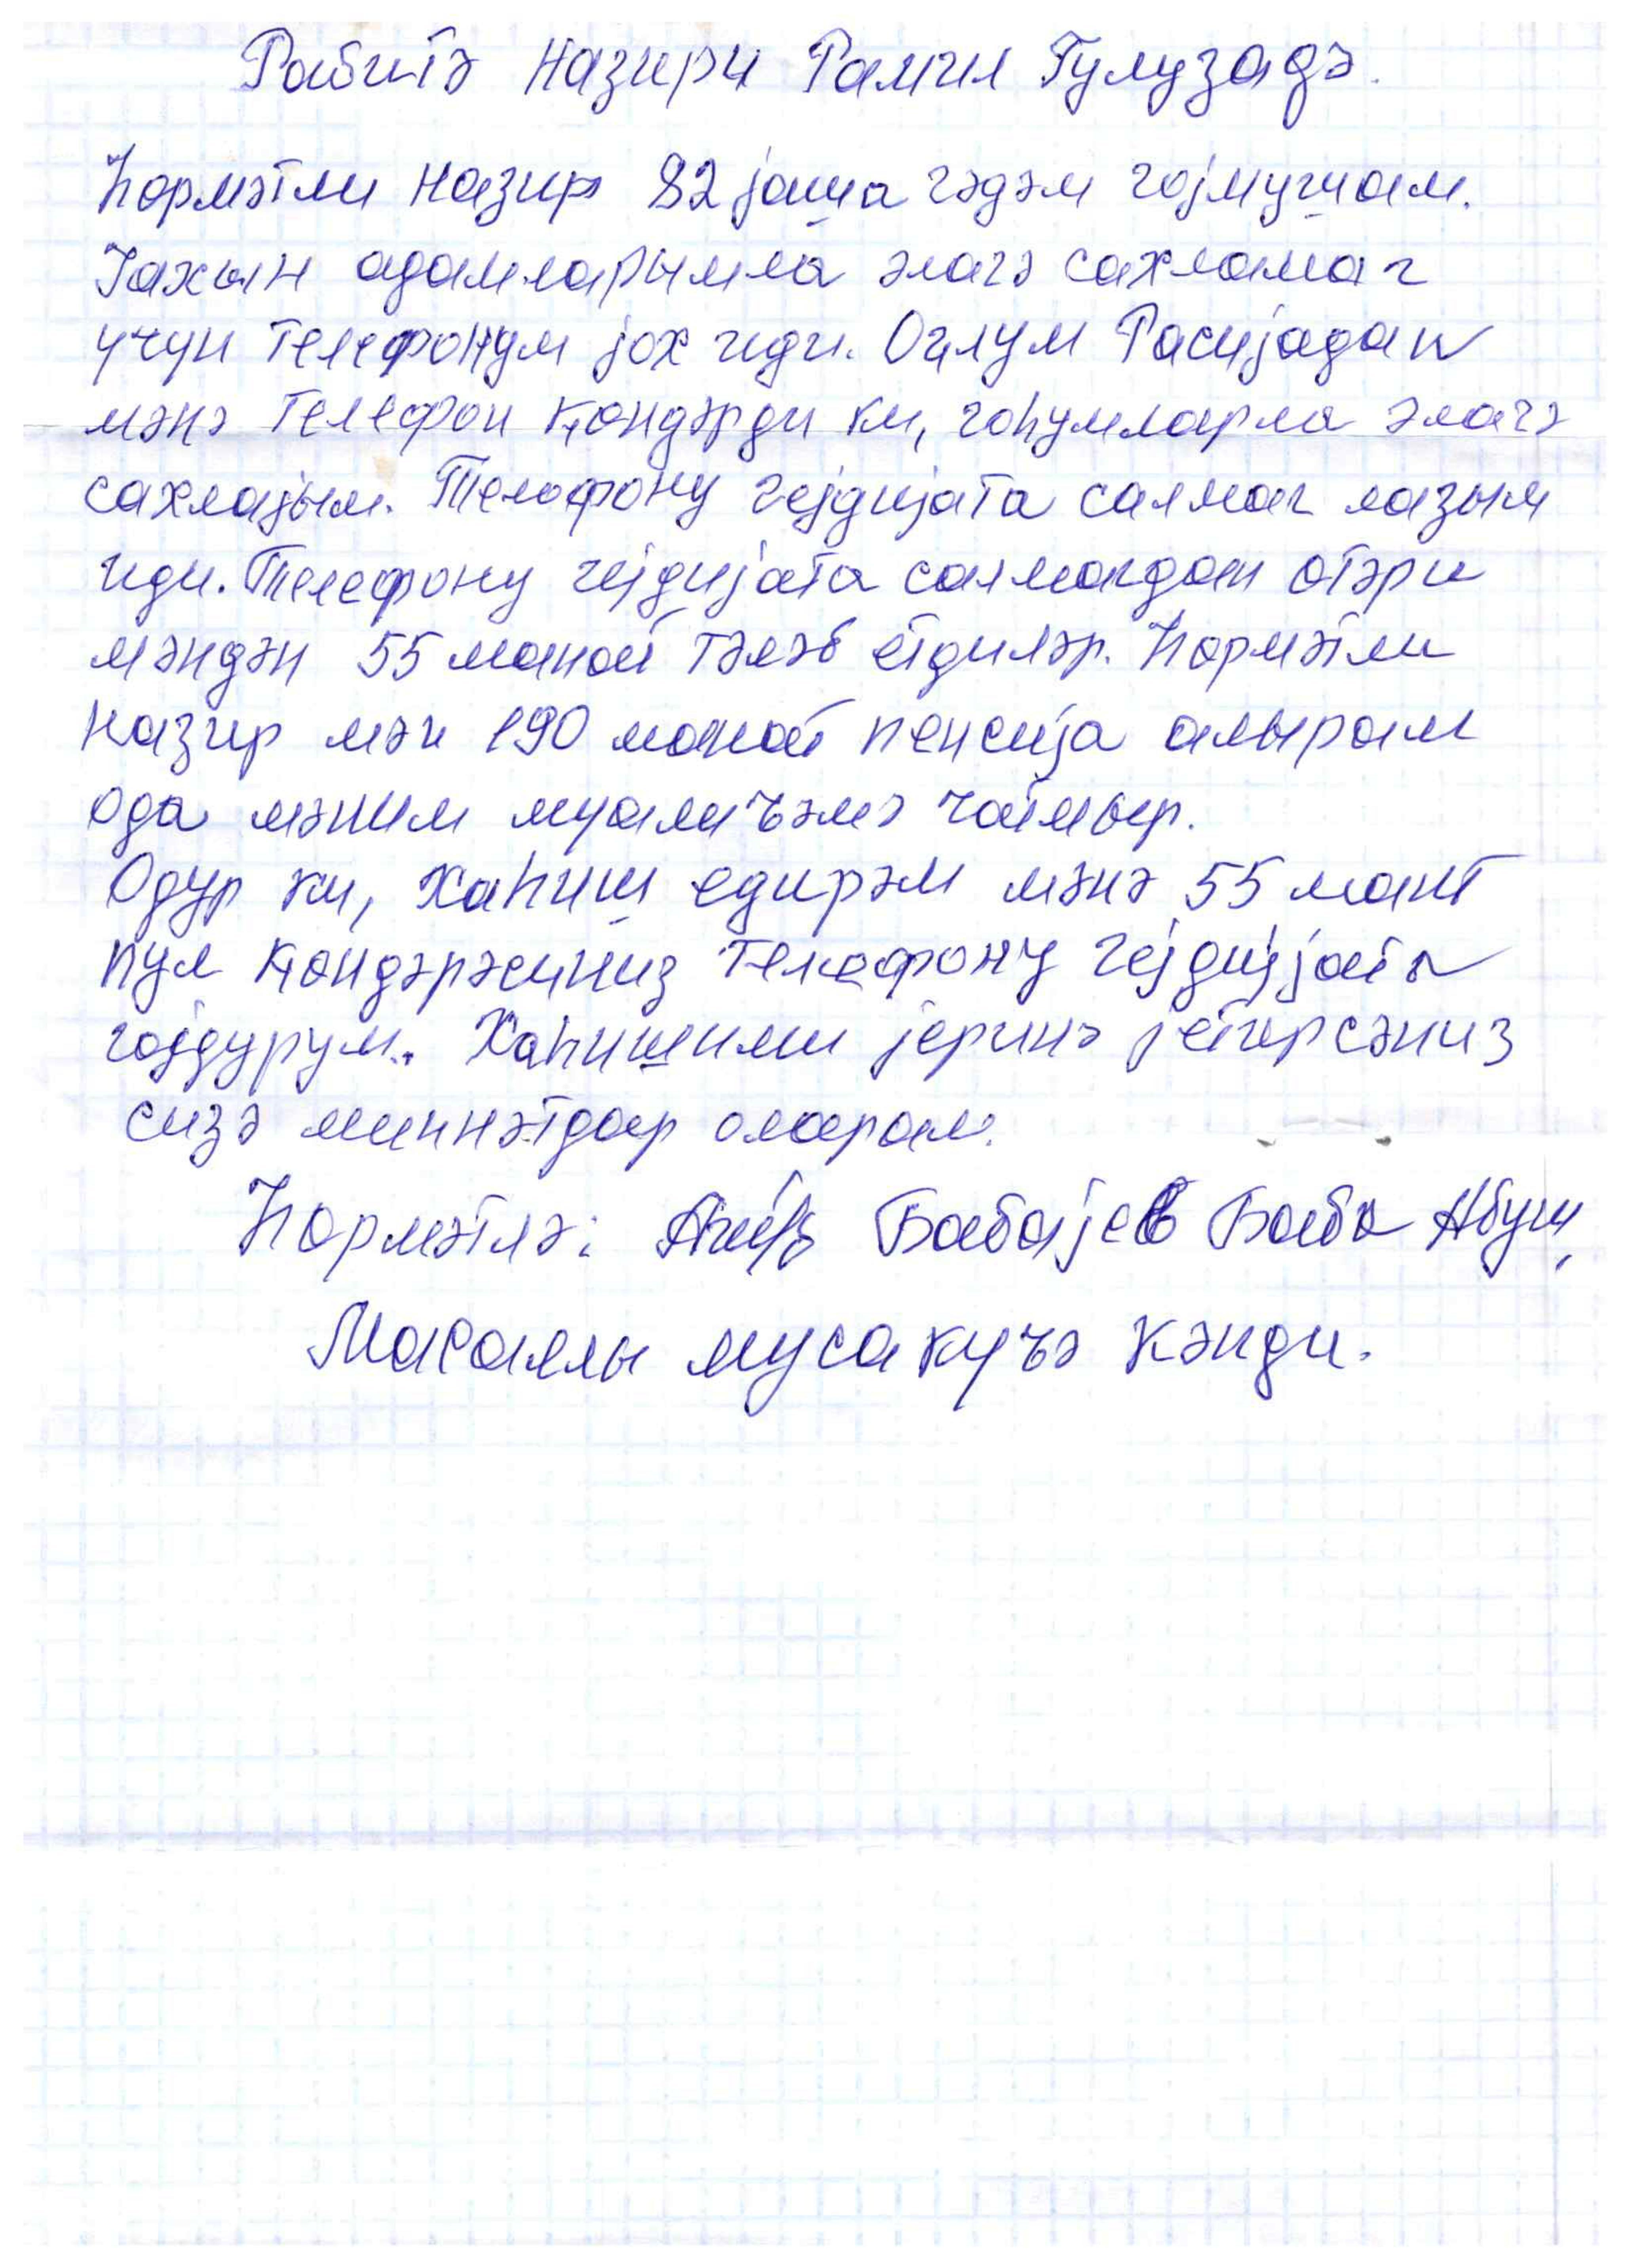 Рабитә Назири Рамил Гулузадә.
Һөрмәтли Назир 82 јаша гәдәм гојмушам.
Јахын адамларымла әлагә сахламаг
үчүн телефонум јох иди. Оғлум Расијадан
мәнә телефон ҝөндәрди ки, гоһумларла әлагә
сахлајым. Телефону гејдијата салмаг лазым
иди. Телефону гејдијата салмагдан отәри
мәндән 55 манат тәләб етдиләр. Һөрмәтли
Назир мән 190 манат пенсија алырам
ода мәним муалиҹәмә чатмыр.
Одур ки, Хаһиш едирәм мәнә 55 мант
пул ҝөндәрәсиниз телефону гејдијјата
гојдурум. Хаһишими јеринә јетирсәниз
сизә миннәтдар оларам.
Һөрмәтлә: Бабајев Баба Абуш
Масаллы мусакуҹә кәнди.